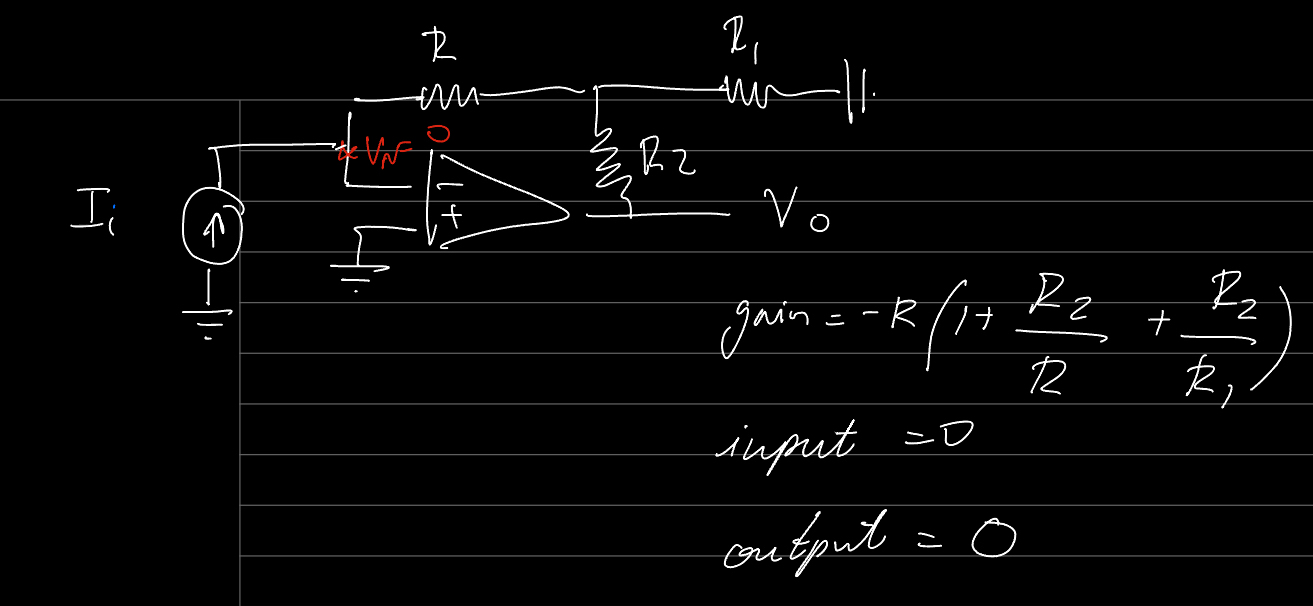 R
R₁
* V_N = 0
R2
I_i
−
+
V₀
gain = -R(1 + R₂/R + R₂/R₁)
input = 0
output = 0